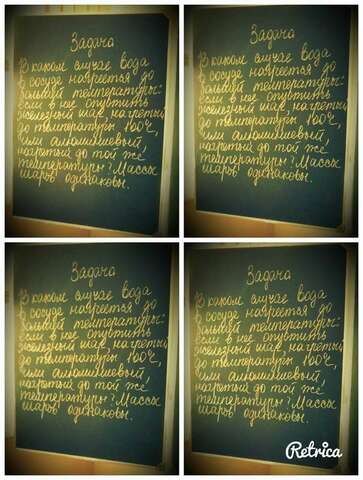 Задача
В каком случае вода
в сосуде нагреется до
большей температуры:
если в нее опустить
железный шар, нагретый
до температуры 100°С,
или алюминиевый,
нагретый до той же
температуры? Массы
шаров одинаковы.
Задача
В каком случае вода
в сосуде нагреется до
большей температуры:
если в нее опустить
железный шар, нагретый
до температуры 100°С,
или алюминиевый,
нагретый до той же
температуры? Массы
шаров одинаковы.
Задача
В каком случае вода
в сосуде нагреется до
большей температуры:
если в нее опустить
железный шар, нагретый
до температуры 100°С,
или алюминиевый,
нагретый до той же
температуры? Массы
шаров одинаковы.
Задача
В каком случае вода
в сосуде нагреется до
большей температуры:
если в нее опустить
железный шар, нагретый
до температуры 100°С,
или алюминиевый,
нагретый до той же
температуры? Массы
шаров одинаковы.
Retrica